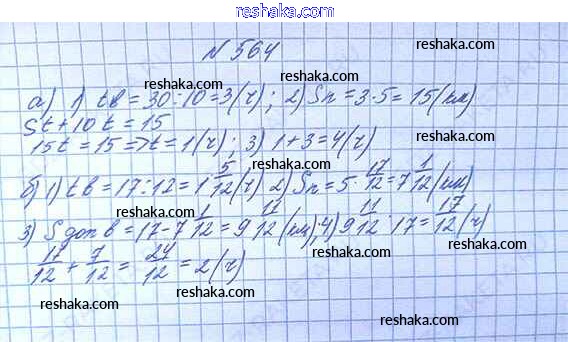 www.reshaka.com
№ 564
reshaka.com
reshaka.com
а) 1) tв = 30 : 10 = 3 (ч); 2) Sп = 3 · 5 = 15 (км)
reshaka.com
5t + 10t = 15
reshaka.com
15t = 15 => t = 1 (ч); 3) 1 + 3 = 4 (ч)
reshaka.com
reshaka.com
б) 1) tв = 17 : 12 = 1 5/12 (ч) 2) Sп = 5 · 17/12 = 7 1/12 (км)
reshaka.com
reshaka.com
3) S доп в = 17 - 7 1/12 = 9 11/12 (км); 4) 9 11/12 : 17 = 17/12 (ч)
reshaka.com
17/12 + 7/12 = 24/12 = 2 (ч)
reshaka.com
reshaka.com
reshaka.com
reshaka.com